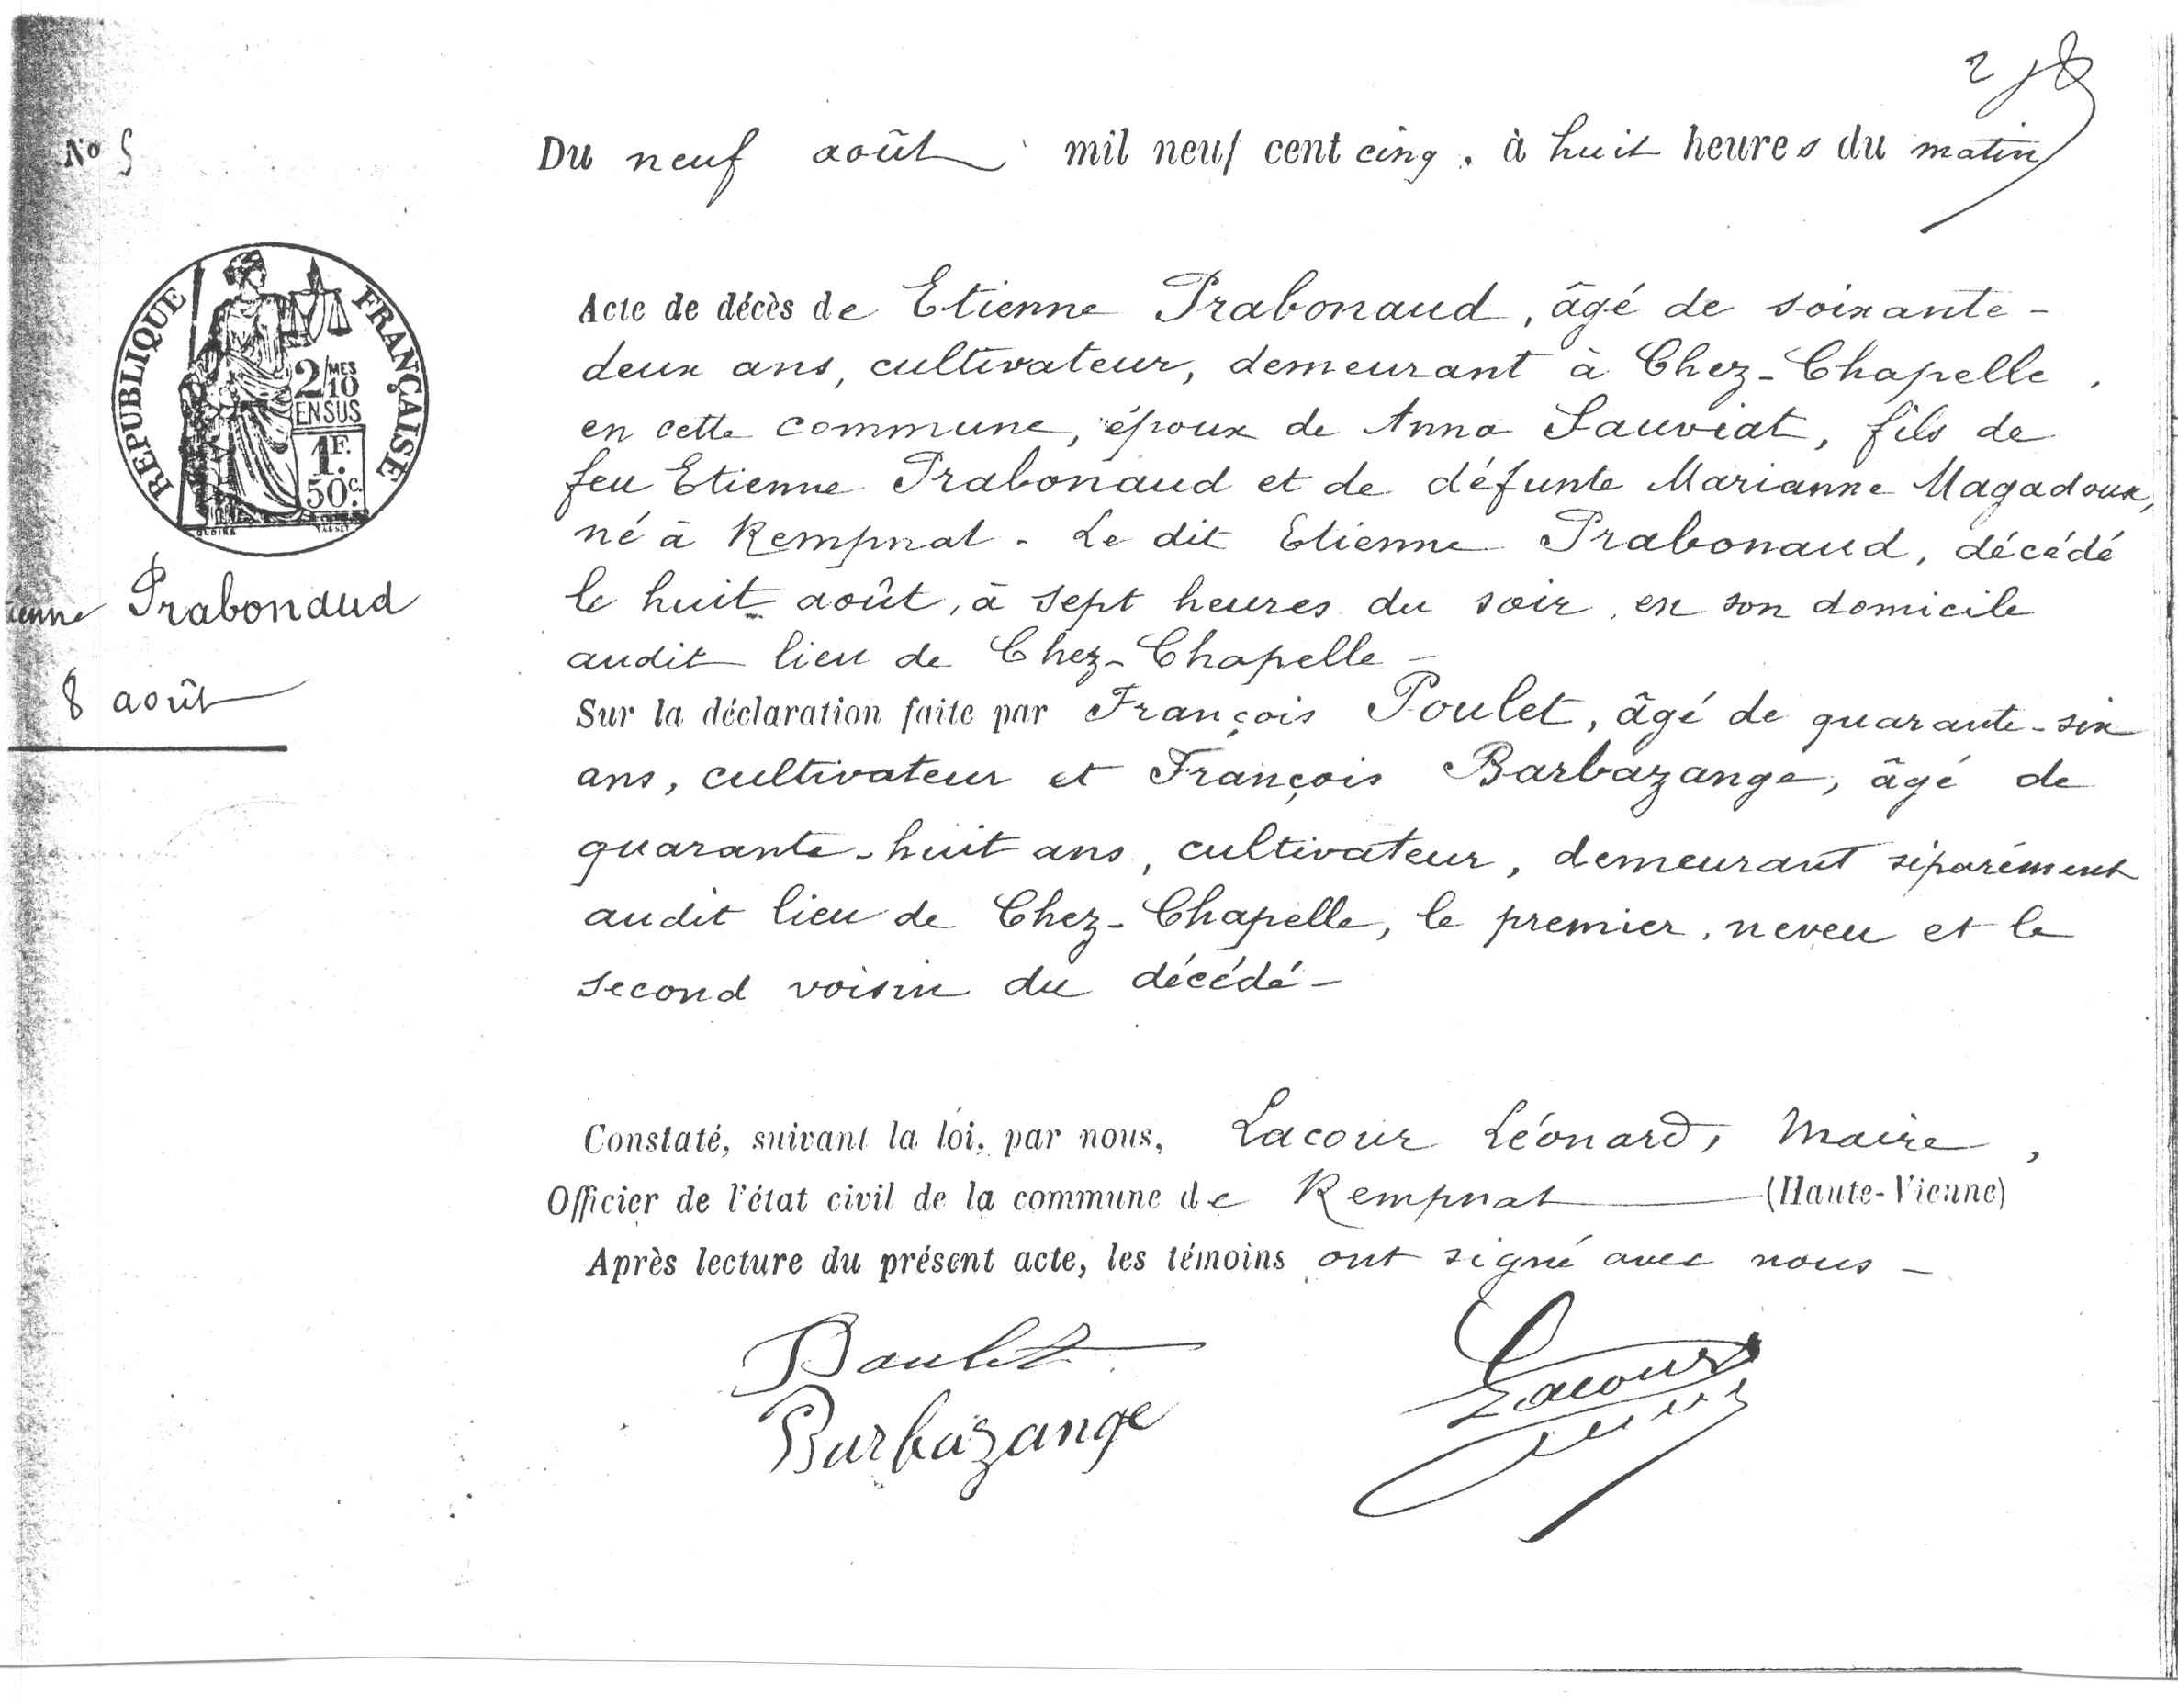 No 5
Du neuf août mil neuf cent cinq, à huit heures du matin
REPUBLIQUE FRANÇAISE
2/MES
10
EN SUS
1F.
50c.
Acte de décès de Etienne Prabonaud, âgé de soixante-
deux ans, cultivateur, demeurant à Chez-Chapelle,
en cette commune, époux de Anna Sauviat, fils de
feu Etienne Prabonaud et de défunte Marianne Magadoux,
né à Rempnat - Le dit Etienne Prabonaud, décédé
le huit août, à sept heures du soir, en son domicile
audit lieu de Chez-Chapelle -
Prabonaud
8 août
Sur la déclaration faite par François Poulet, âgé de quarante-six
ans, cultivateur et François Barbazange, âgé de
quarante-huit ans, cultivateur, demeurant séparément
audit lieu de Chez-Chapelle, le premier, neveu et le
second voisin du décédé -
Constaté, suivant la loi, par nous, Lacour Léonard, Maire,
Officier de l'état civil de la commune de Rempnat (Haute-Vienne)
Après lecture du présent acte, les témoins ont signé avec nous -
Poulet
Barbazange
Lacour